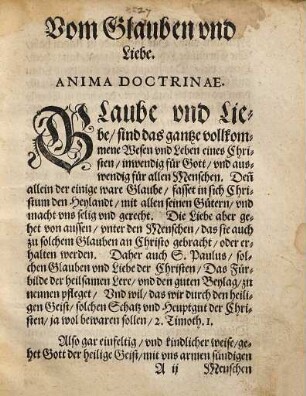 Vom Glauben vnd
Liebe.
ANIMA DOCTRINAE.
GLaube vnd Lie-
be/ sind das gantze vollkom-
mene Wesen vnd Leben eines Chri-
sten/ inwendig für Gott/ vnd aus-
wendig für allen Menschen. Deñ
allein der einige ware Glaube/ fasset in sich Chri-
stum den Heylandt/ mit allen seinen Gütern/ vnd
macht vns selig vnd gerecht. Die Liebe aber ge-
het von aussen/ vnter den Menschen/ das sie auch
zu solchem Glauben an Christo gebracht/ oder er-
halten werden. Daher auch S. Paulus/ sol-
chen Glauben vnd Liebe der Christen/ Das Für-
bilde der heilsamen Lere/ vnd den guten Beylag/ zu
nennen pfleget/ Vnd wil/ das wir durch den heili-
gen Geist/ solchen Schatz vnd Heuptgut der Chri-
sten/ ja wol bewaren sollen/ 2. Timoth. 1.
Also gar einfeltig/ vnd kindlicher weise/ ge-
het Gott der heilige Geist/ mit vns armen sündigen
A ij Menschen